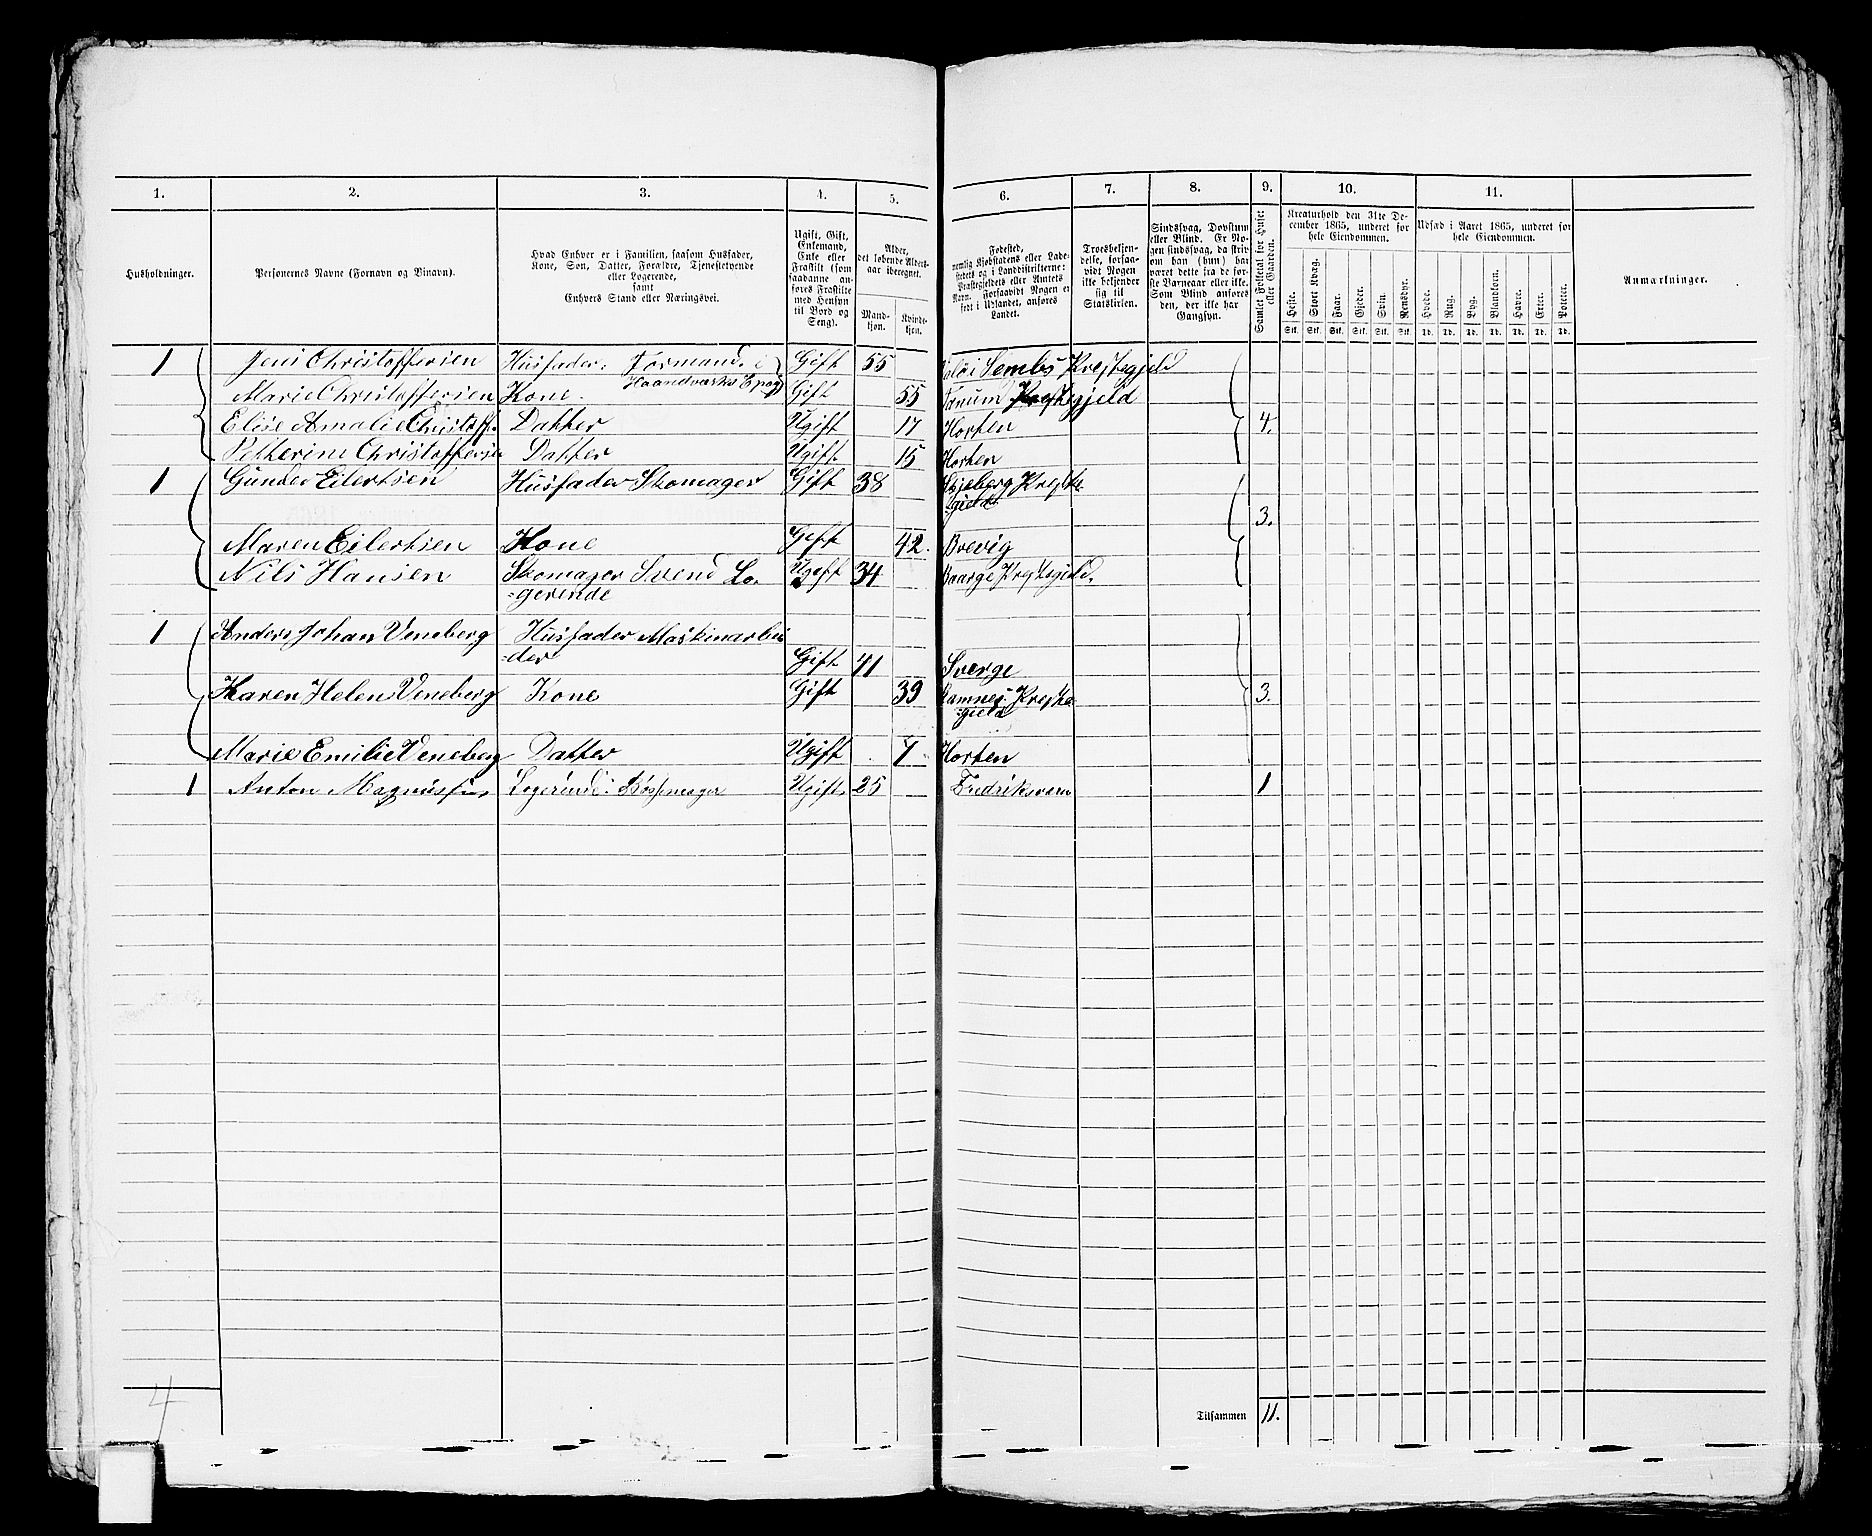 1. 2. 3. 4. 5. 6. 7. 8. 9. 10. 11.
Husholdninger.
Personernes Navne (Fornavn og Binavn).
Hvad Enhver er i Familien, saasom Husfader,
Kone, Søn, Datter, Forældre, Tjenestetyende
eller Logerende,
samt
Enhvers Stand eller Næringsvei.
Ugift, Gift,
Enkemand,
Enke eller
Fraskilt (som
saadanne an-
føres Fraskilte
med Hensyn
til Bord og
Seng).
Alder,
det løbende Alders-
aar iberegnet.
Mand-
kjøn.
Kvinde-
kjøn.
Fødested,
nemlig Kjøbstadens eller Lade-
stedets og i Landdistrikterne:
Præstegjeldets eller Amtets
Navn. Forsaavidt Nogen er
født i Udlandet, anføres
Landet.
Troesbekjen-
delse, forsaa-
vidt Nogen
ikke bekjender
sig til
Statskirken.
Sindssvag, Døvstum
eller Blind. Er No-
gen sindssvag, da skriv
om han (hun) har
været dette fra de før-
ste Barneaar eller ikke.
Som Blind anføres
den, der ikke har
Gangsyn.
Samlet Folketal for Huset
eller Gaarden.
Kreaturhold den 31te De-
cember 1865, underet for
hele Eiendommen.
Heste. Stort Kvæg. Faar. Gjeder. Svin. Rensdyr.
Stk. Stk. Stk. Stk. Stk. Stk.
Udsæd i Aaret 1865, underet for
hele Eiendommen.
Hvede. Rug. Byg. Blandkorn. Havre. Erter. Poteter.
Td. Td. Td. Td. Td. Td. Td.
Anmærkninger.
1 Jens Christoffersen Husfader. Formand i Gift 55 Sembs Præstegjeld
Haandværks Epagi
Marie Christoffersen Kone. Gift 55 Tanum Præstegjeld
Elise Amalie Christoff. Datter Ugift 17 Horten 4.
Petherine Christoffersen Datter Ugift 15 Horten
1 Gunder Eilertsen Husfader Skomager Gift 38 Skjeberg Præste
gjeld
3.
Maren Eilertsen Kone Gift 42. Brevig
Nils Hansen Skomager Svend Lo- Ugift 34 Baarge Præstegjeld.
=gerende
1 Anders Johan Veneberg Husfader Maskinarbei
=der Gift 41 Sverge
Karen Helene Veneberg Kone Gift 39 Ramnes Præste 3.
=gjeld
Marie Emilie Veneberg Datter Ugift 7 Horten
1 Anton Magnussen Logerende: Bøssemager Ugift 25 Fredriksværn 1
4
Tilsammen 11.